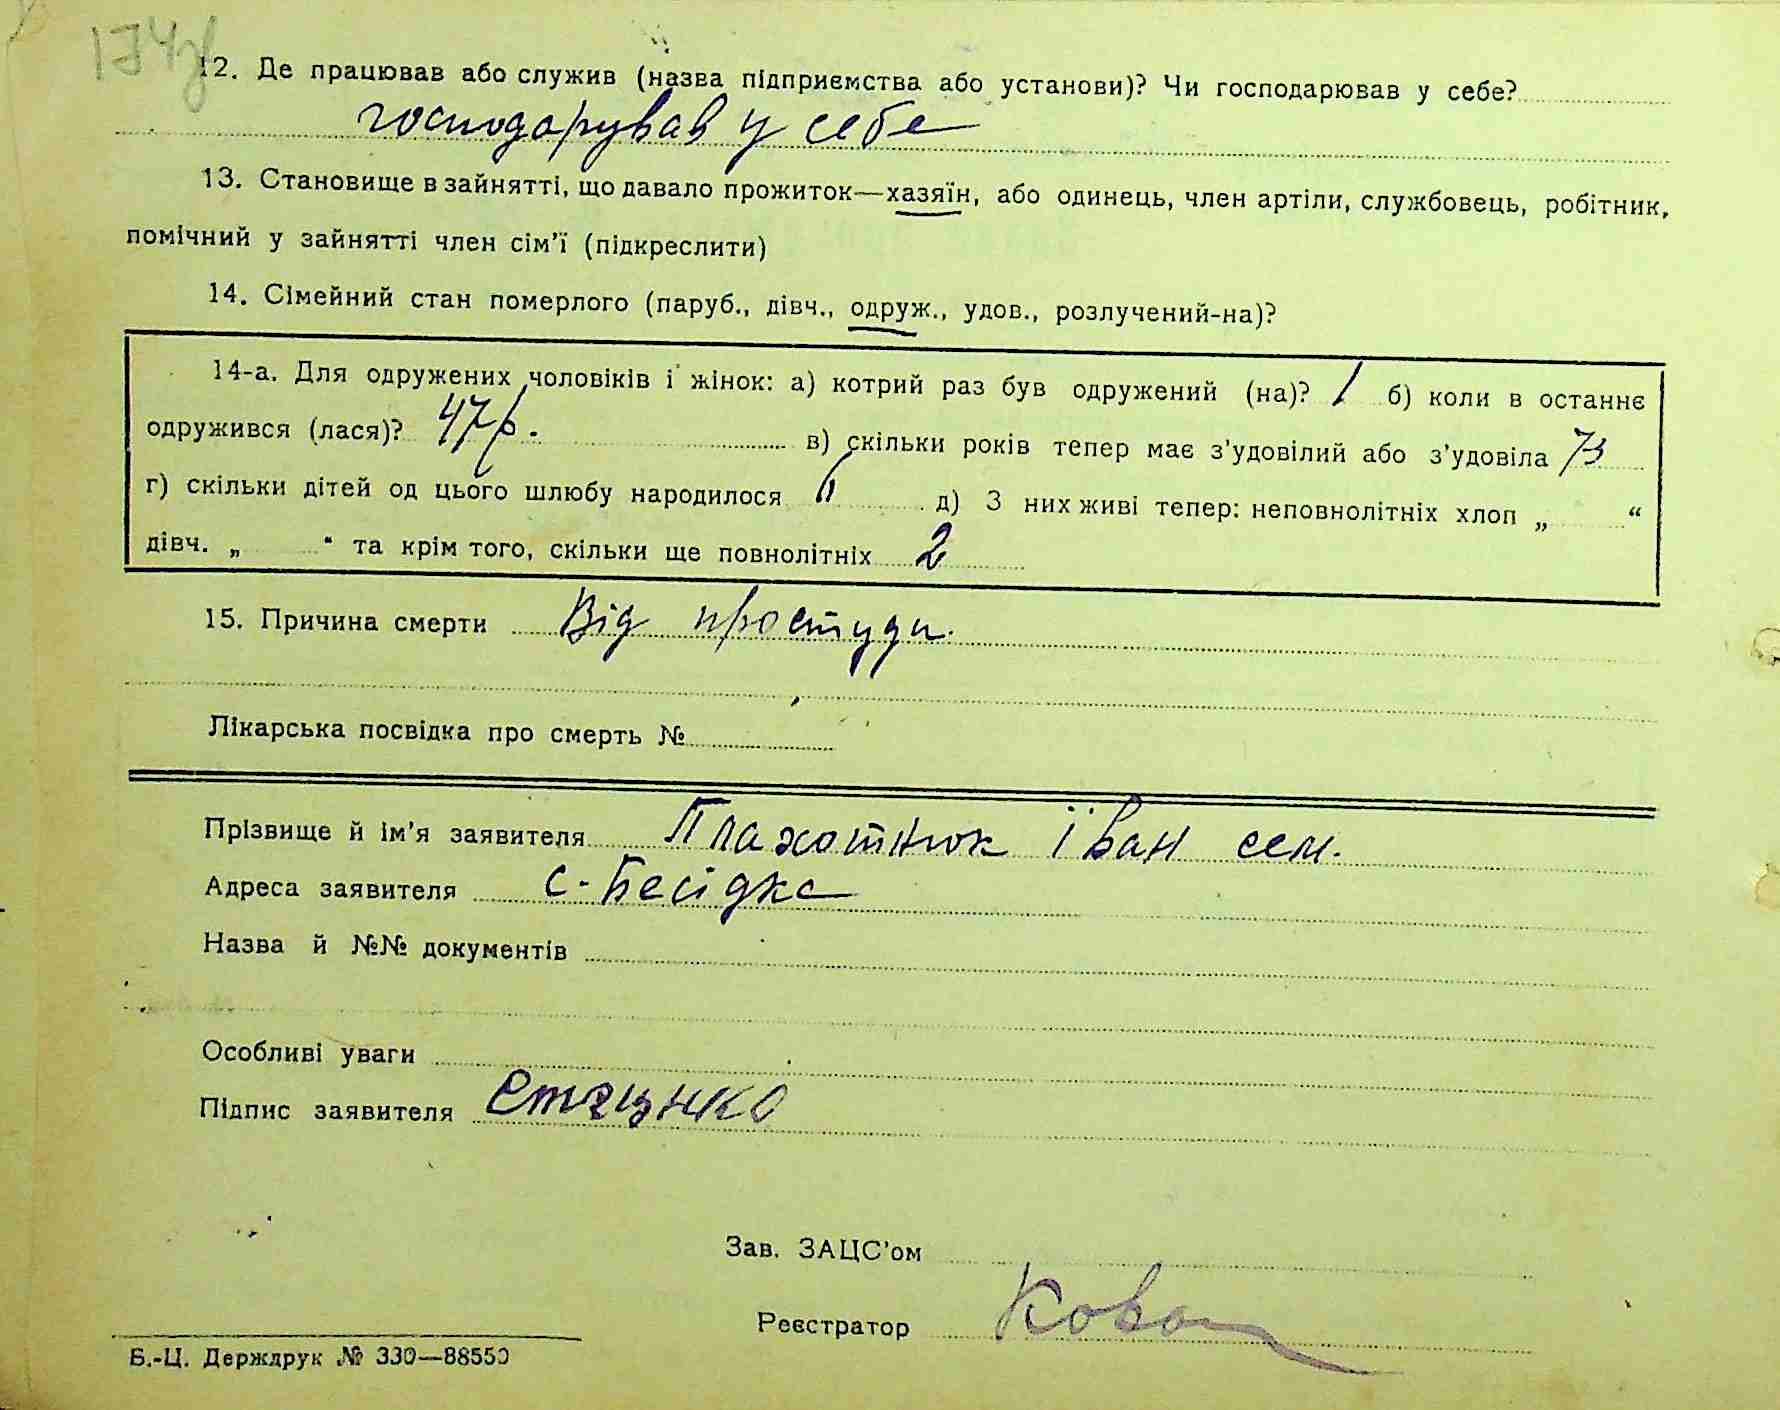 174зв
12. Де працював або служив (назва підприємства або установи)? Чи господарював у себе?
господарував у себе
13. Становище в зайнятті, що давало прожиток—хазяїн, або одинець, член артіли, службовець, робітник,
помічний у зайнятті член сім'ї (підкреслити)
14. Сімейний стан померлого (паруб., дівч., одруж., удов., розлучений-на)?
14-а. Для одружених чоловіків і жінок: а) котрий раз був одружений (на)? 1 б) коли в останнє
одружився (лася)? 47 р. в) скільки років тепер має з'удовілий або з'удовіла 73
г) скільки дітей од цього шлюбу народилося д) З них живі тепер: неповнолітніх хлоп „ “
дівч. „ “ та крім того, скільки ще повнолітніх 2
15. Причина смерти Від простуди.
Лікарська посвідка про смерть №
Прізвище й ім'я заявителя Плахотнюк Іван сем.
Адреса заявителя с-Бесідка
Назва й №№ документів
Особливі уваги
Підпис заявителя Стецнко
Зав. ЗАЦС'ом
Реєстратор
Б.-Ц. Держдрук № 330—88550